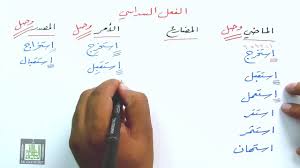 الفعل السداسي
الماضي وصل المضارع الأمر وصل المصدر وصل
إستخرج إستخرج إستخراج
إستقبل إستقبل إستقبال
إستعمل
استغفر
استثمر
استهان